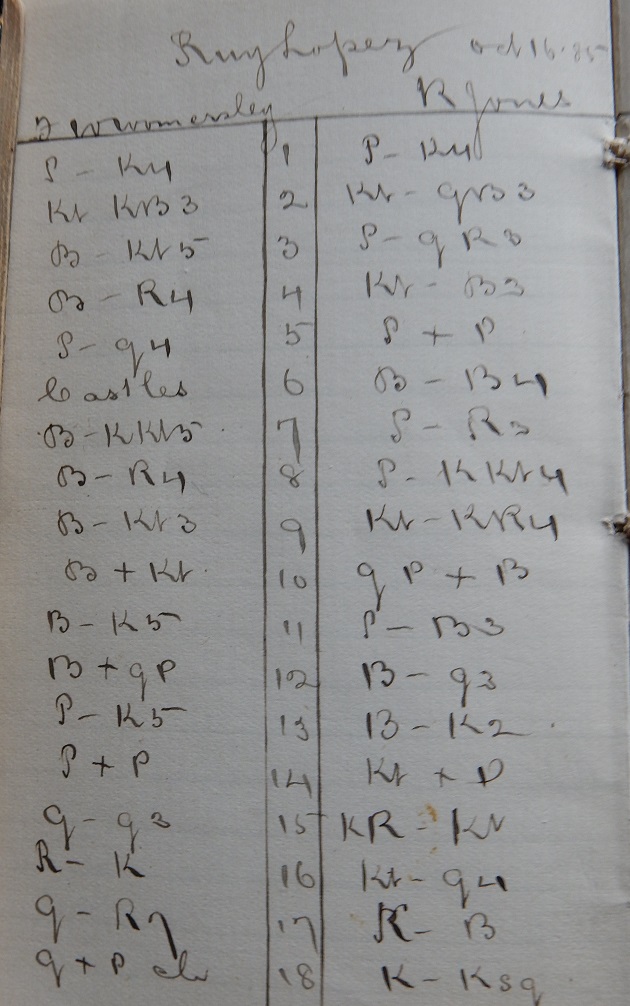 Ruy Lopez Oct 16. 85
J Womersley R Jones
P - K4 1 P - K4
Kt KB3 2 Kt - QB3
B - Kt5 3 P - Q R3
B - R4 4 Kt - B3
P - Q4 5 P + P
Castles 6 B - B4
B - KKt5 7 P - R3
B - R4 8 P - K Kt4
B - Kt3 9 Kt - KR4
B + Kt 10 Q P + B
B - K5 11 P - B3
B + QP 12 B - Q3
P - K5 13 B - K2
P + P 14 Kt + P
Q - Q3 15 KR - Kt
R - K 16 Kt - Q4
Q - R7 17 K - B
Q + P ch 18 K - Ksq